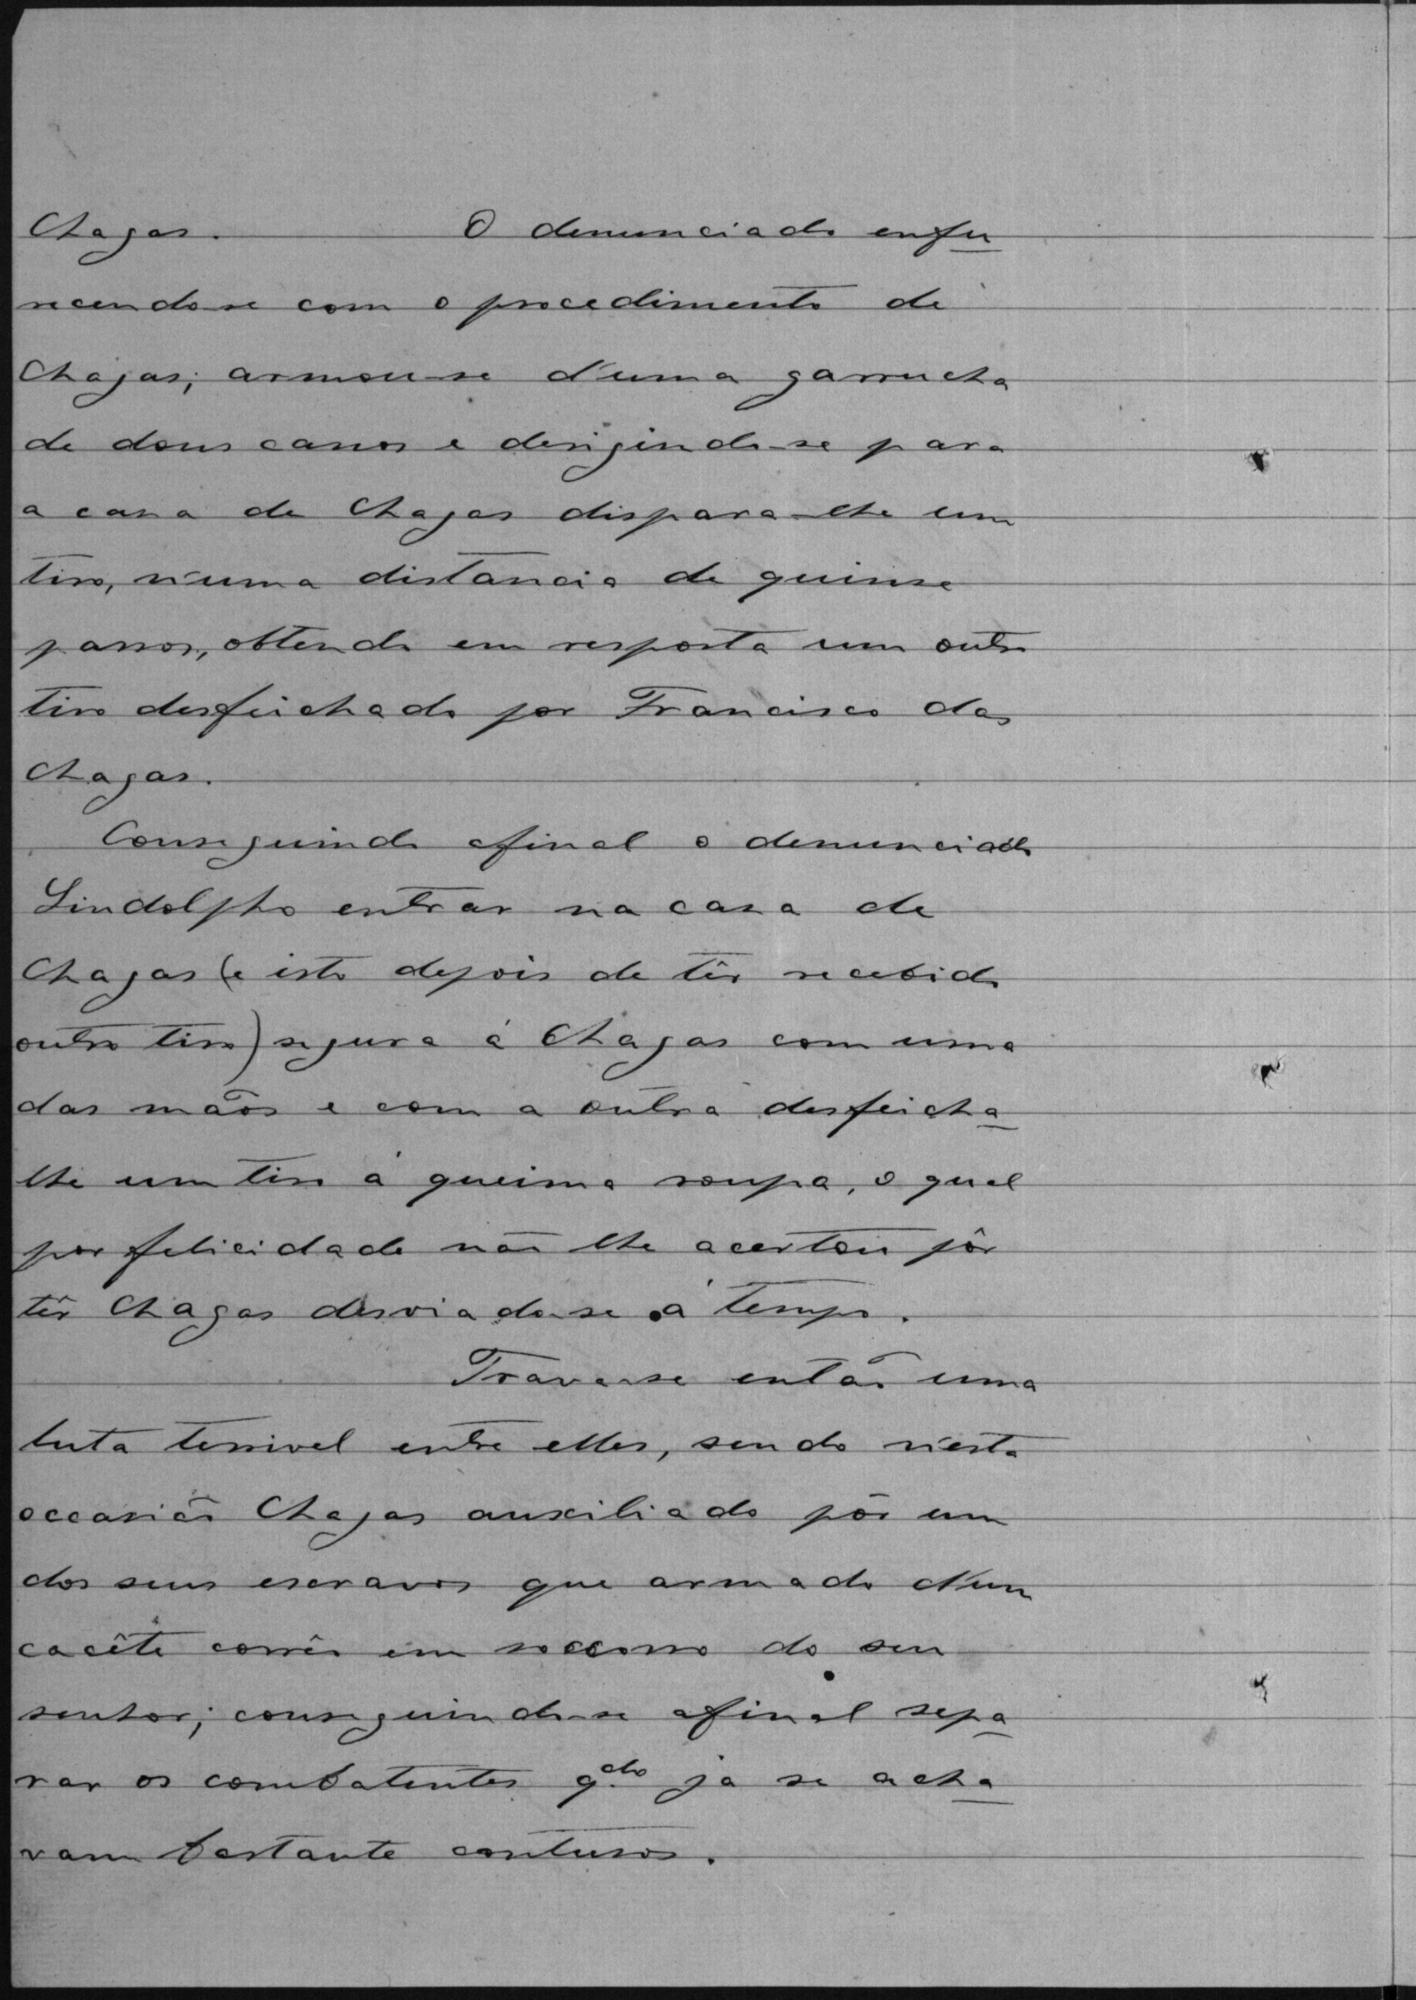 Chagas. O denunciado enfu
recendo-se com o procedimento de
Chagas; armou-se d'uma garrucha
de dous canos e derigindo-se para
a casa de Chagas dispara-lhe um
tiro, n'uma distancia de quinse
passos, obtendo em resposta um outro
tiro desfeichado por Francisco das
Chagas.
Conseguindo afinal o denunciado
Lindolpho entrar na casa de
Chagas (e isto depois de têr recebido
outro tiro) segura á Chagas com uma
das mãos e com a outra desfeicha
lhe um tiro á queima roupa, o qual
por felicidade não lhe acertou pôr
têr Chagas desviado-se á tempo.
Trava-se então uma
luta terrivel entre elles, sendo n'esta
occasião Chagas auxiliado pôr um
dos seus escravos que armado d'um
cacête corrêo em soccorro do seu
senhor; conseguindo-se afinal sepa
rar os combatentes qdo já se acha
vam bastante contusos.